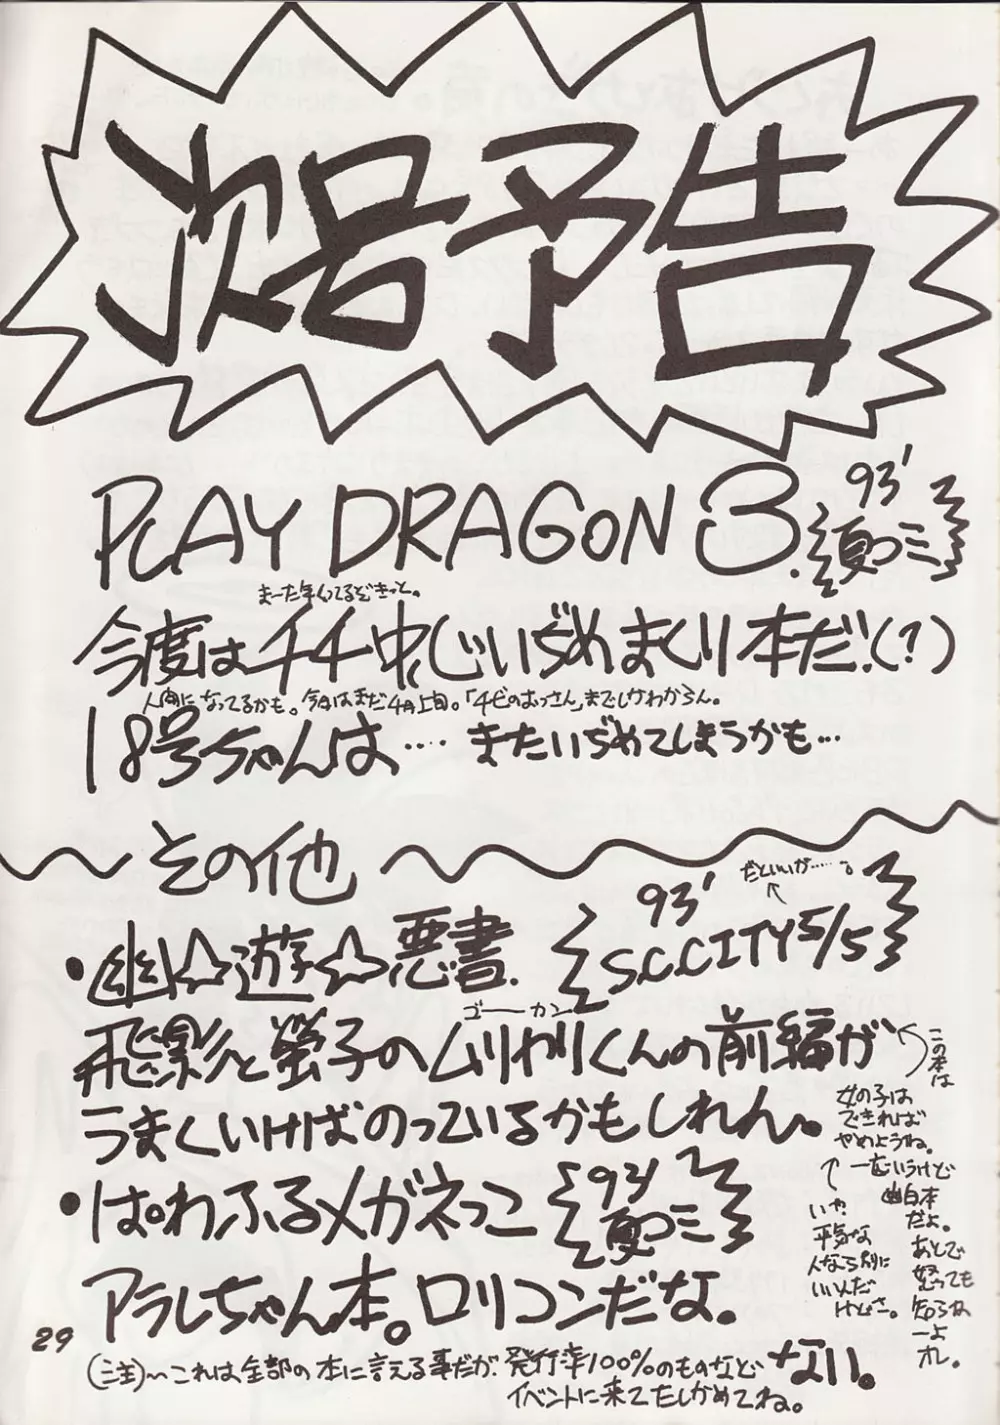 次号予告
PLAY DRAGON 3.
93'
夏コミ
まーた年くってるぞきっと。
今度はチチ中心じいぢめまくり本だ!(?)
人間になってるかも。今日はまだ4月上旬。「チビのおっさん」までしかわからん。
18号ちゃんは‥‥またいぢめてしまうかも…
その他
・幽☆遊☆悪書.
93'
S.C.CITY5/5
だといいが……。
飛影と螢子のムリヤリくんの前編が
ゴーカン
うまくいけばのっているかもしれん。
この本は
女の子は
できれば
やめようね。
一応いうけど
幽白本
だよ。
あとで
怒っても
知らね
ーよ
オレ。
いや
平気な
人なら別に
いいんだ
けどさ。
・ぱわふるメガネっこ
93'
夏コミ
アラレちゃん本。ロリコンだな。
(注)〜これは全部の本に言える事だが発行率100%のものなどない。
イベントに来てたしかめてね。
29